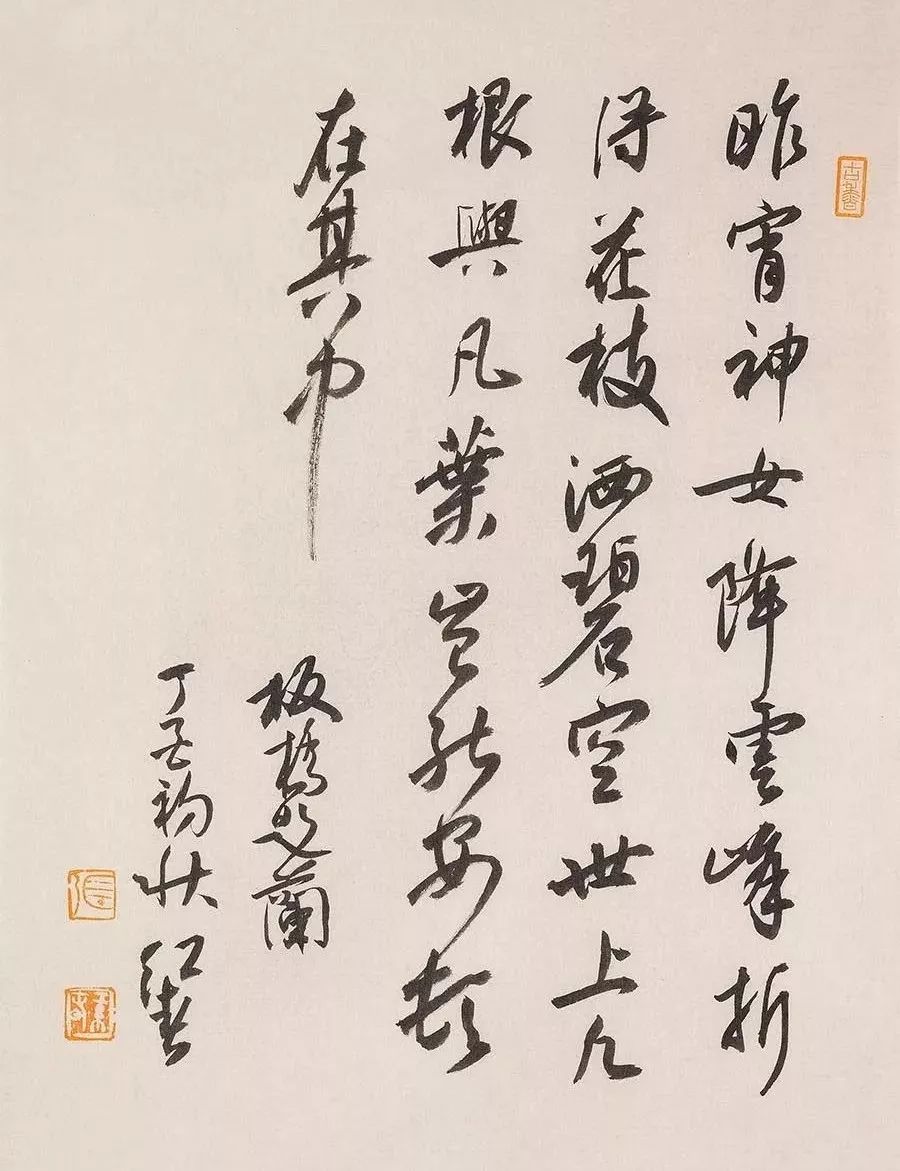 昨宵神女降雲峰折
得花枝洒碧空世上凡
根與凡葉豈能安頓
在其中
板橋題蘭
丁酉初秋紅春